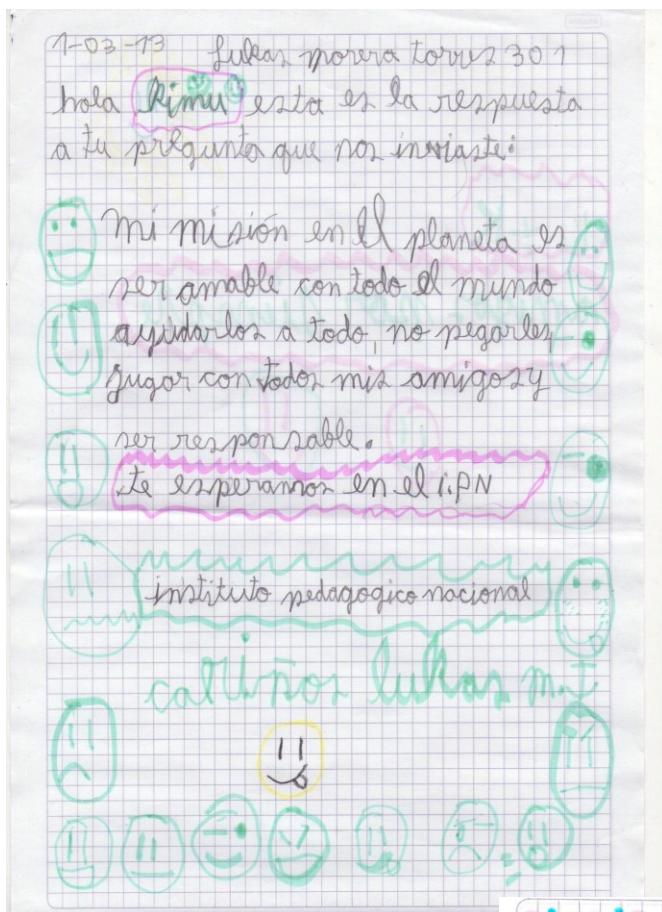 1-03-13 Lukas morera torres 301
hola Rimu esta es la respuesta
a tu pregunta que nos inviaste:
mi misión en el planeta es
ser amable con todo el mundo
ayudarlos a todo, no pegarles,
jugar con todos mis amigos y
ser responsable.
te esperamos en el i.PN
instituto pedagogico nacional
cariños lukas m.t